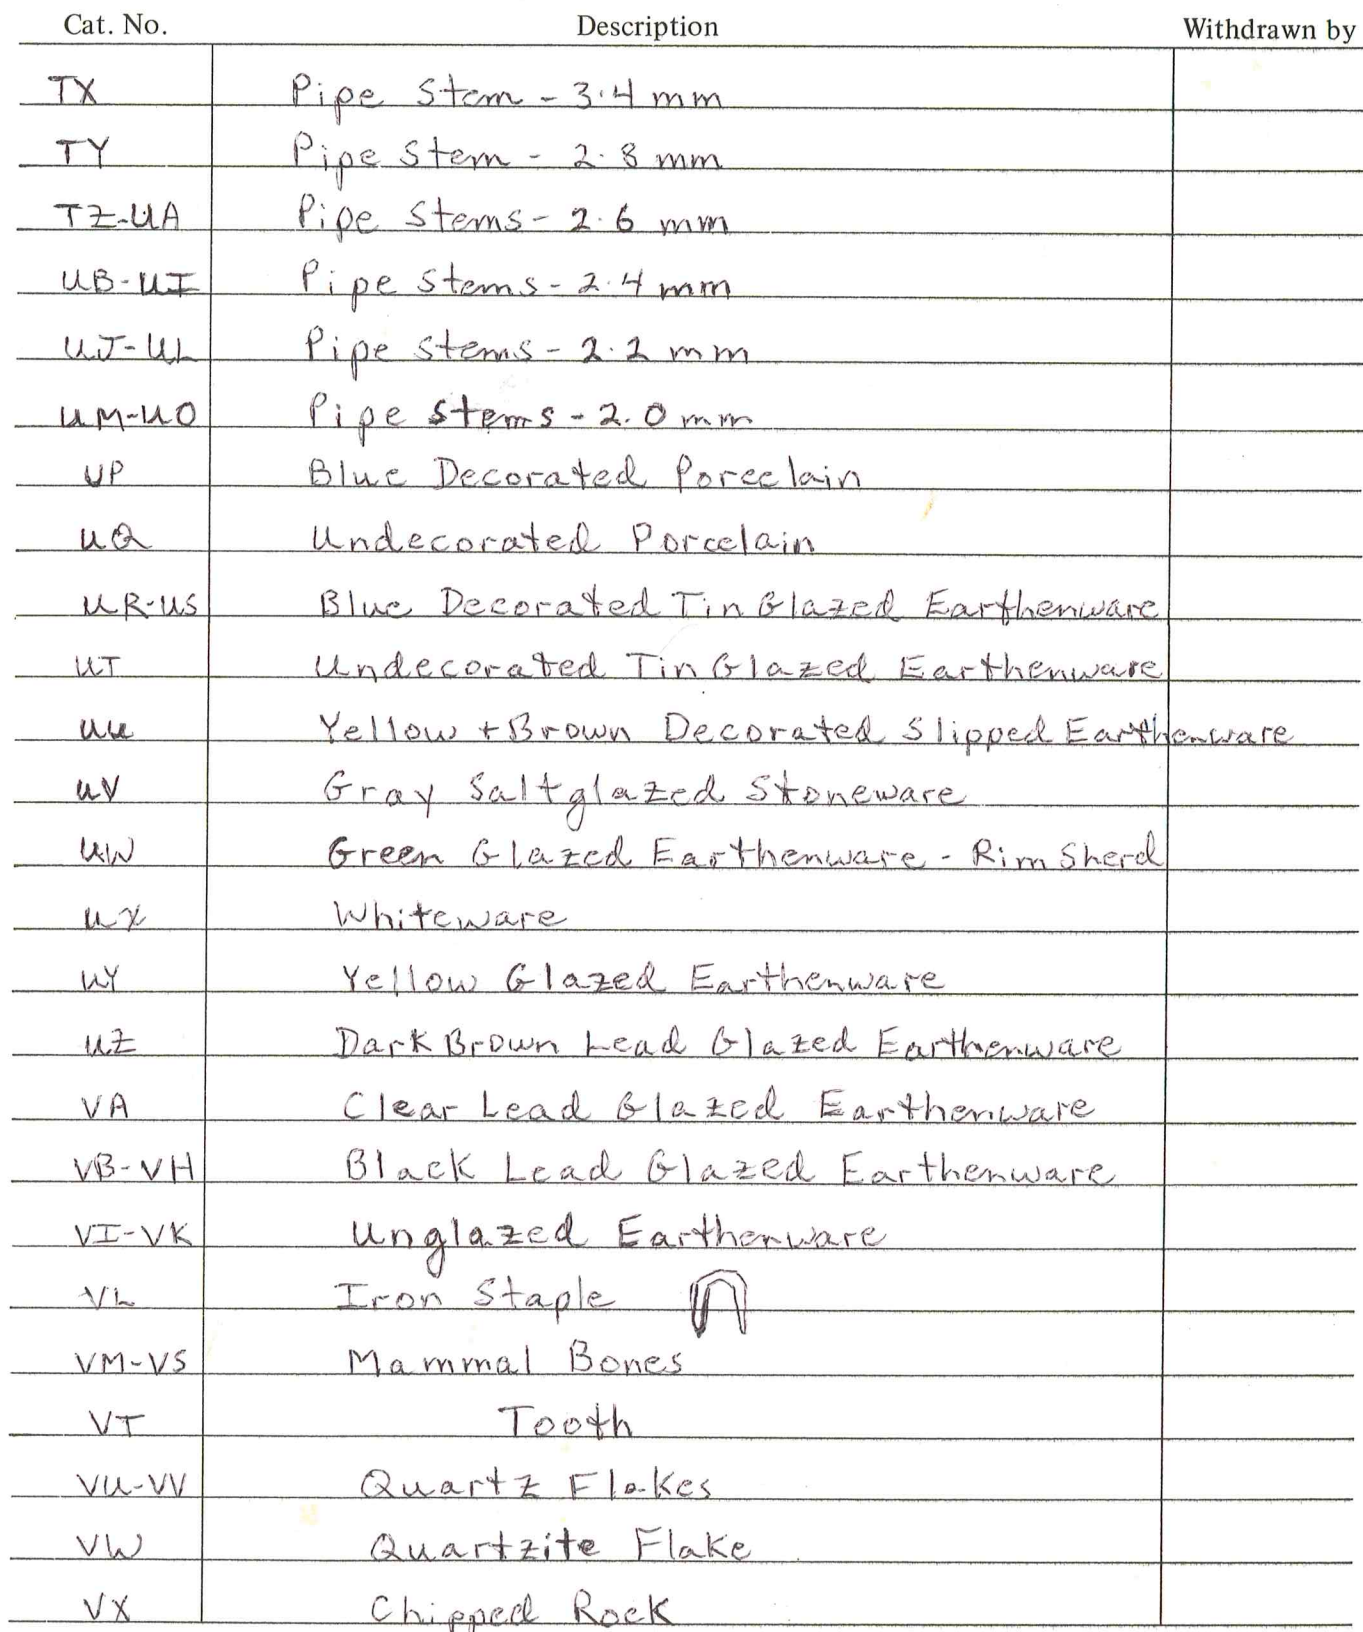 Cat. No. Description Withdrawn by
TX Pipe Stem - 3.4 mm
TY Pipe Stem - 2.8 mm
TZ-UA Pipe Stems - 2.6 mm
UB-UI Pipe Stems - 2.4 mm
UJ-UL Pipe Stems - 2.2 mm
UM-UO Pipe Stems - 2.0 mm
UP Blue Decorated Porcelain
UQ Undecorated Porcelain
UR-US Blue Decorated Tin Glazed Earthenware
UT Undecorated Tin Glazed Earthenware
UU Yellow + Brown Decorated Slipped Earthenware
UV Gray Saltglazed Stoneware
UW Green Glazed Earthenware - Rim Sherd
UX Whiteware
UY Yellow Glazed Earthenware
UZ Dark Brown Lead Glazed Earthenware
VA Clear Lead Glazed Earthenware
VB-VH Black Lead Glazed Earthenware
VI-VK Unglazed Earthenware
VL Iron Staple
VM-VS Mammal Bones
VT Tooth
VU-VV Quartz Flakes
VW Quartzite Flake
VX Chipped Rock